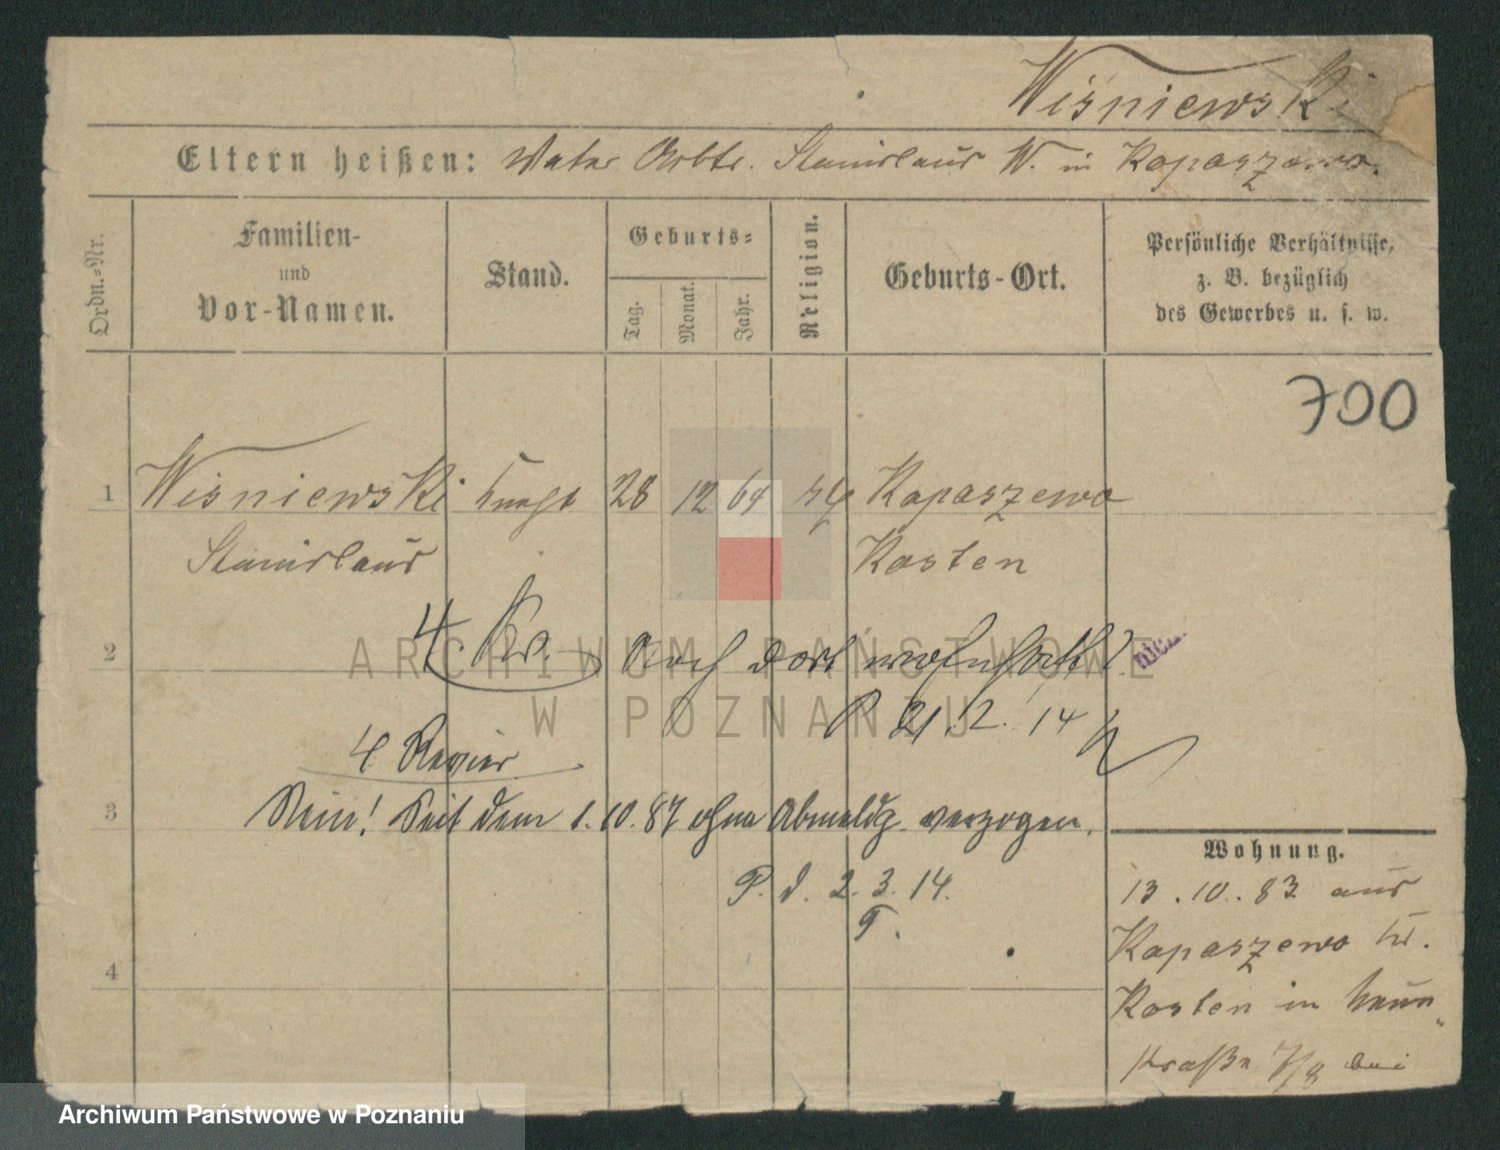 Wiśniewski
Eltern heißen: Vater Arbtr. Stanislaus W. in Kopaszewo.
Ordn.=Nr.
Familien-
und
Vor-Namen.
Stand.
Geburts=
Tag.
Monat.
Jahr.
Religion.
Geburts-Ort.
Persönliche Verhältnisse,
z. B. bezüglich
des Gewerbes u. s. w.
700
1 Wisniewski 28 12 64 Kopaszewo
Stanislaus Kosten
2 4. Rv. Noch dort wohnhaft?
P 21. 2. 14
4. Revier
3 Nein! Seit dem 1. 10. 87 ohne Abmeldg. verzogen.
P. d. 2. 3. 14.
T.
4
Wohnung.
13. 10. 83 aus
Kopaszewo Kr.
Kosten in
straße 7/8 bei
ARCHIWUM PAŃSTWOWE
W POZNANIU
Archiwum Państwowe w Poznaniu